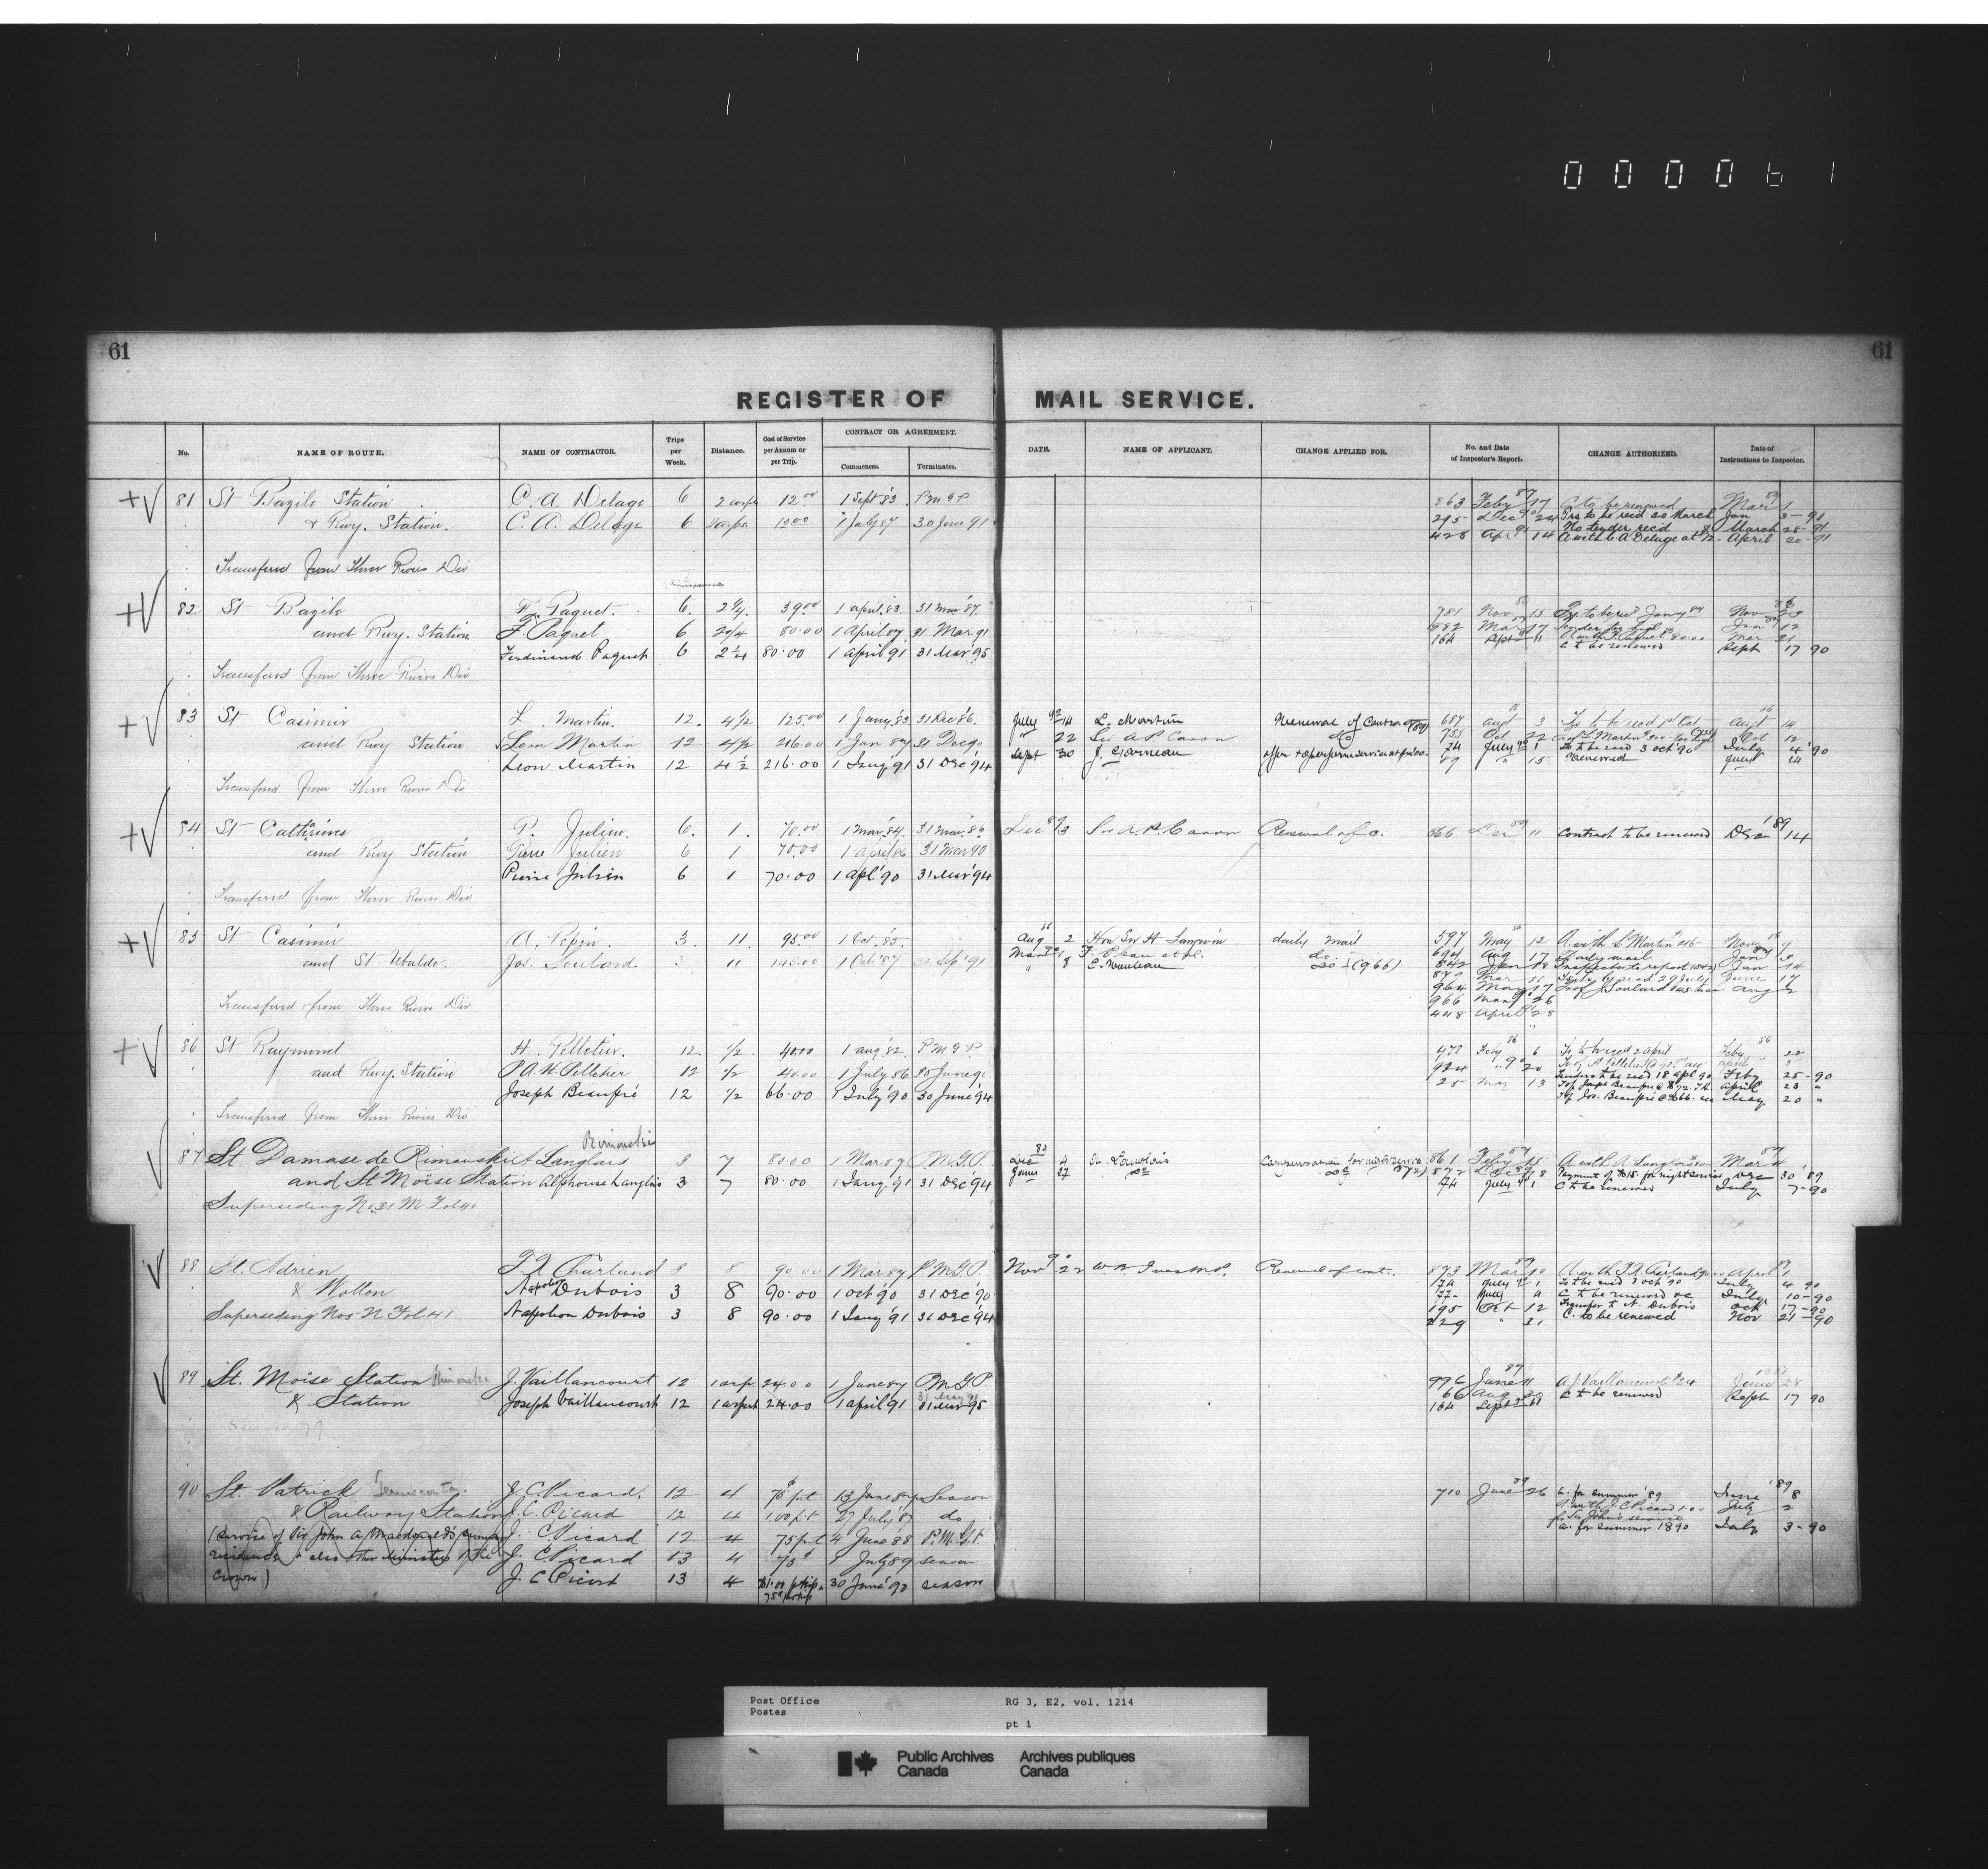 000061
61
61
REGISTER OF MAIL SERVICE.
No. NAME OF ROUTE. NAME OF CONTRACTOR. Trips per Week. Distance. Cost of Service per Annum or per Trip. CONTRACT OR AGREEMENT. Commences. Terminates. DATE. NAME OF APPLICANT. CHANGE APPLIED FOR. No. and Date of Inspector's Report. CHANGE AUTHORIZED. Date of Instructions to Inspector.
81 St Bazile Station C. A. Delage 6 12.00 1 Sept '83 P M G P 563 Feby 87 17 C to be renewed Mar 87 1
& Rwy. Station. C. A. Delage 6 12.00 1 July 87 30 June 91 295 Dec 24 Trs to be recd 20 March Jan 3-91
No tender recd March 28-91
428 Apr 91 14 A with C A Delage at 12 April 20-91
Transferred from Three Rivers Div
82 St Bazile F. Paquet. 6. 2 1/4. 39.00 1 April '83. 31 Mar '87. 781 Nov 86 15 Nov 86
and Rwy. Station F. Paquet 6 2 1/4 80.00 1 April 87 31 Mar 91 882 Mar 17 Tender too high Jan 12
Ferdinand Paquet 6 2 1/4 80.00 1 April 91 31 Mar 95 164 11 C to be renewed Sept 17 90
Transferred from Three Rivers Div
83 St Casimir L. Martin. 12. 4 1/2 125.00 1 Jany '83 31 Dec '86. July 92 14 L. Martin Renewal of Contract 687 Augt 3 Augt 14
and Rwy Station Leon Martin 12 4 1/2 216.00 1 Jan 87 31 Dec 90 " 22 Sir A. P. Caron do 755 Oct 22 Oct 12
Leon Martin 12 4 1/2 216.00 1 Jany '91 31 Dec '94 Sept 30 J. Garneau 74 July 1 Trs to be recd 3 Oct '90 July 4 '90
89 " 15 Renewed
Transferred from Three Rivers Div
84 St Catherines P. Julien. 6. 1. 70.00 1 Mar. '84. 31 Mar. '86 Dec 89 3 Sir A. P. Caron Renewal of C. 666 Dec 89 11 Contract to be renewed Dec '89 14
and Rwy Station Pierre Julien 6 1 70.00 1 April '86 31 Mar 90
Pierre Julien 6 1 70.00 1 Apl '90 31 Mar '94
Transferred from Three Rivers Div
85 St Casimir A. Pepin. 3. 11. 95.00 1 Oct. '85. Aug 86 2 Hon Sir H Langevin daily mail 597 May 86 12 A with L Martin Nov 86 9
and St Ubalde. Jos. Soulard 3 11 145.00 1 Oct '87 30 Sep '91 do 694 Aug 17 daily mail Jan 87
" 8 do (966) 842 Jan 18 Inspector to report Jan 14
Mar 11 June 17
964 May 17 T of J. Soulard Aug 2
966 May 26
448 April 28
Transferred from Three Rivers Div
86 St Raymond H. Pelletier. 12. 1/2. 40.00 1 Aug '82. P M G P. 478 Feby 86 6 Trs to be recd 2 April Feby 86 22
and Rwy. Station P. A. W. Pelletier 12 1/2 40.00 1 July 86 30 June 90 924 " 90 20 Tenders to be recd 18 Apl 90 Feby 25-90
Joseph Beaupré 12 1/2 66.00 1 July '90 30 June '94 25 May 13 April 23 "
T of Jos. Beaupré May 20 "
Transferred from Three Rivers Div
87 St Damase de Rimouski A Langlais 3 7 80.00 1 Mar 87 P.M.G.P. Dec 4 Compensation for night service 861 Feby 87 15 A with A Langlais Mar 87
Rimouski
and St Moise Station Alphonse Langlais 3 7 80.00 1 Jany. '91 31 Dec '94 June 27 do 872 Payment of $15. for night service Dec 30 '89
74 July 1 C to be renewed July 7-90
Superseding No 21 M Fol 40
88 St. Adrien F. X. Charland 3 8 90.00 1 Mar 87 P.M.G.P. Nov 90 22 W B Ives M.P. Renewal of cont. 873 Mar 87 10 April 87 1
& Wotton Napoleon Dubois 3 8 90.00 1 Oct 90 31 Dec '90 74 July 1 Trs to be recd 3 Oct 90 July 4 90
Superseding Nos N Fol 41 Napoleon Dubois 3 8 90.00 1 Jany '91 31 Dec '94 77 July 4 C to be renewed July 10-90
195 Oct 12 Transfer to N. Dubois Oct 17-90
229 " 31 C. to be renewed Nov 21-90
89 St. Moise Station J. Vaillancourt 12 1 arp. 24.00 1 June 87 P.M.G.P. 996 June 87 11 A J. Vaillancourt $24 June 28
& Station Joseph Vaillancourt 12 1 arpent 24.00 1 April '91 31 Mar '95 66 Aug C to be renewed Sept 17 90
164 Sept 11
90 St. Patrick J. C. Picard. 12 4 75 p.t 13 June 87 Season 710 June 89 26 A. for summer '89 June '89 8
& Railway Station J. C. Picard 12 4 1.00 p.t 27 July '87 do A. with J. C. Picard July 2
(Service of Sir John A Macdonald's summer J. C Picard 12 4 75 p.t 4 June 88 P.M.G.P. for Sir John's service
residence & also other Ministers of the J. C Picard 13 4 75 1 July 89 season A. for summer 1890 July 3-90
Crown) J. C Picard 13 4 $1.00 p trip 30 June '90 season
75 p trip
Post Office
Postes
RG 3, E2, vol. 1214
pt 1
Public Archives Canada
Archives publiques Canada